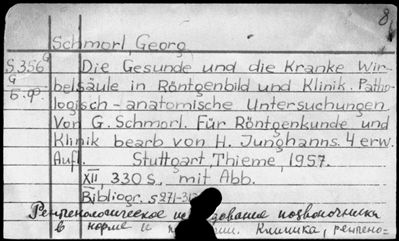 8
Schmorl, Georg
S.356 Die Gesunde und die Kranke Wir-
belsäule in Röntgenbild und Klinik. Patho-
logisch-anatomische Untersuchungen
Von G. Schmorl. Für Röntgenkunde und
Klinik bearb von H. Junghanns. 4 erw.
Aufl. Stuttgart, Thieme, 1957.
XII, 330 s., mit Abb.
Bibliogr. s 271-
Рентгенологическое позвоночника
в норме и Клиника, рентгено-